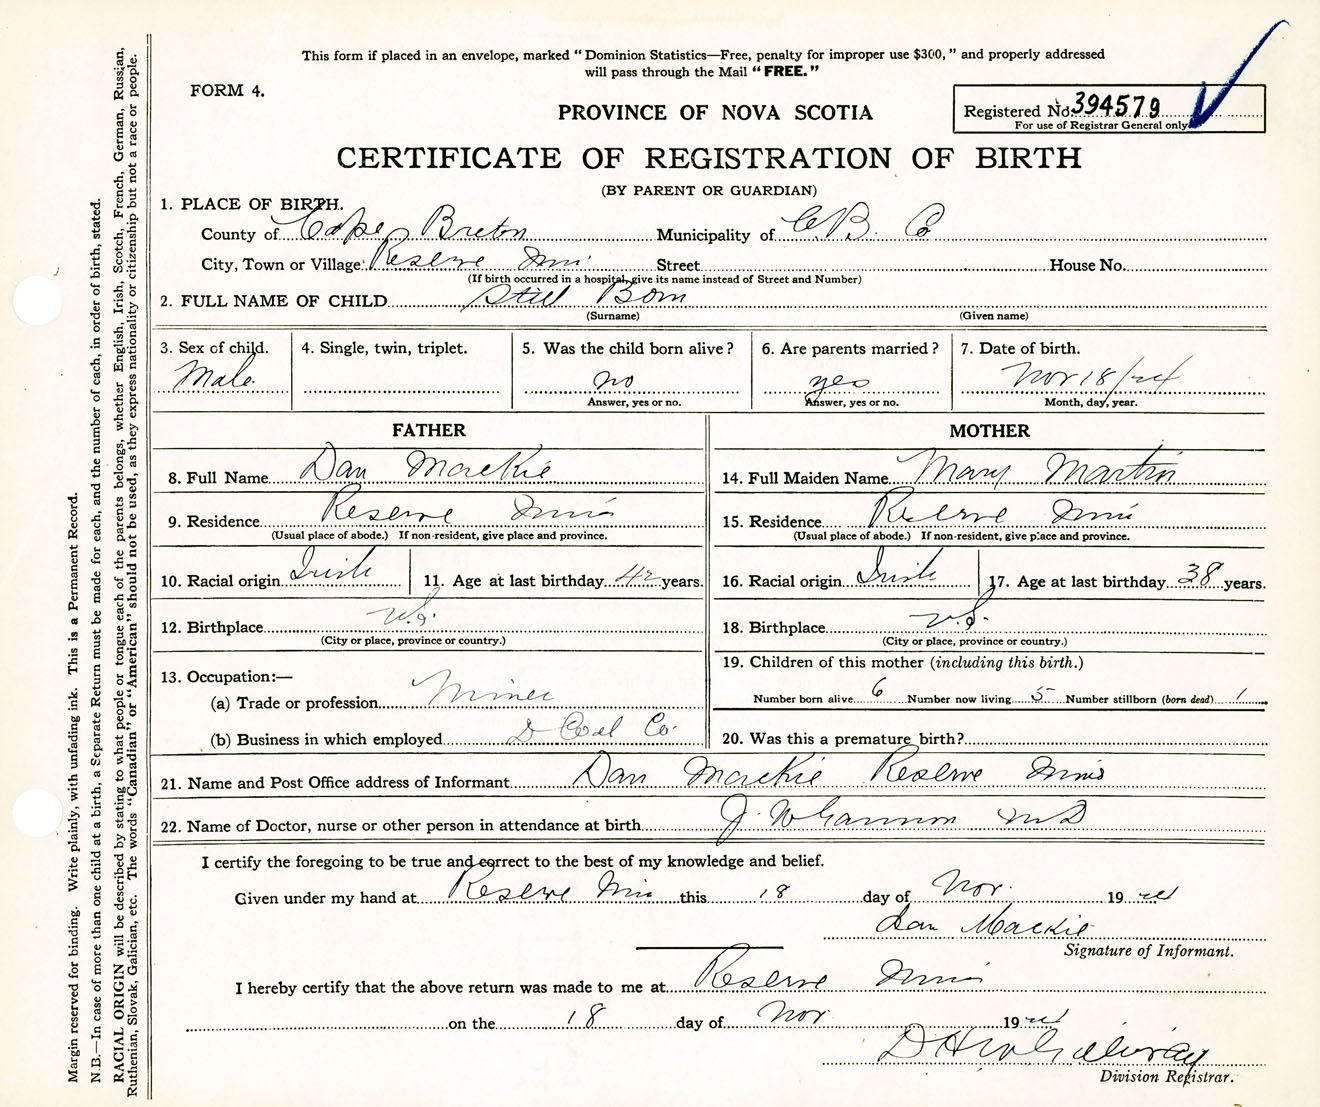 This form if placed in an envelope, marked "Dominion Statistics—Free, penalty for improper use $300," and properly addressed
will pass through the Mail "FREE."
FORM 4.
PROVINCE OF NOVA SCOTIA
Registered No. 394579
For use of Registrar General only
CERTIFICATE OF REGISTRATION OF BIRTH
(BY PARENT OR GUARDIAN)
1. PLACE OF BIRTH.
County of Cape Breton Municipality of C.B. Co
City, Town or Village Reserve Street House No.
(If birth occurred in a hospital, give its name instead of Street and Number)
2. FULL NAME OF CHILD Still Born
(Surname) (Given name)
3. Sex of child. 4. Single, twin, triplet. 5. Was the child born alive? 6. Are parents married? 7. Date of birth.
Male no yes Nov 18/24
Answer, yes or no. Answer, yes or no. Month, day, year.
FATHER MOTHER
8. Full Name Dan MacKie 14. Full Maiden Name Mary Martin
9. Residence Reserve 15. Residence Reserve
(Usual place of abode.) If non-resident, give place and province. (Usual place of abode.) If non-resident, give place and province.
10. Racial origin Irish 11. Age at last birthday 42 years. 16. Racial origin Irish 17. Age at last birthday 38 years.
12. Birthplace 18. Birthplace
(City or place, province or country.) (City or place, province or country.)
19. Children of this mother (including this birth.)
13. Occupation:—
Number born alive 6 Number now living 5 Number stillborn (born dead) 1
(a) Trade or profession Miner
(b) Business in which employed D Coal Co. 20. Was this a premature birth?
21. Name and Post Office address of Informant Dan MacKie Reserve Mines
22. Name of Doctor, nurse or other person in attendance at birth J. W MD
I certify the foregoing to be true and correct to the best of my knowledge and belief.
Given under my hand at Reserve this 18 day of Nov. 19 24
Dan Mackie
Signature of Informant.
I hereby certify that the above return was made to me at Reserve
on the 18 day of Nov 19 24
Division Registrar.
Margin reserved for binding. Write plainly, with unfading ink. This is a Permanent Record.
N.B.—In case of more than one child at a birth, a Separate Return must be made for each, and the number of each, in order of birth, stated.
RACIAL ORIGIN will be described by stating to what people or tongue each of the parents belongs, whether English, Irish, Scotch, French, German, Russian,
Ruthenian, Slovak, Galician, etc. The words "Canadian" or "American" should not be used, as they express nationality or citizenship but not a race or people.